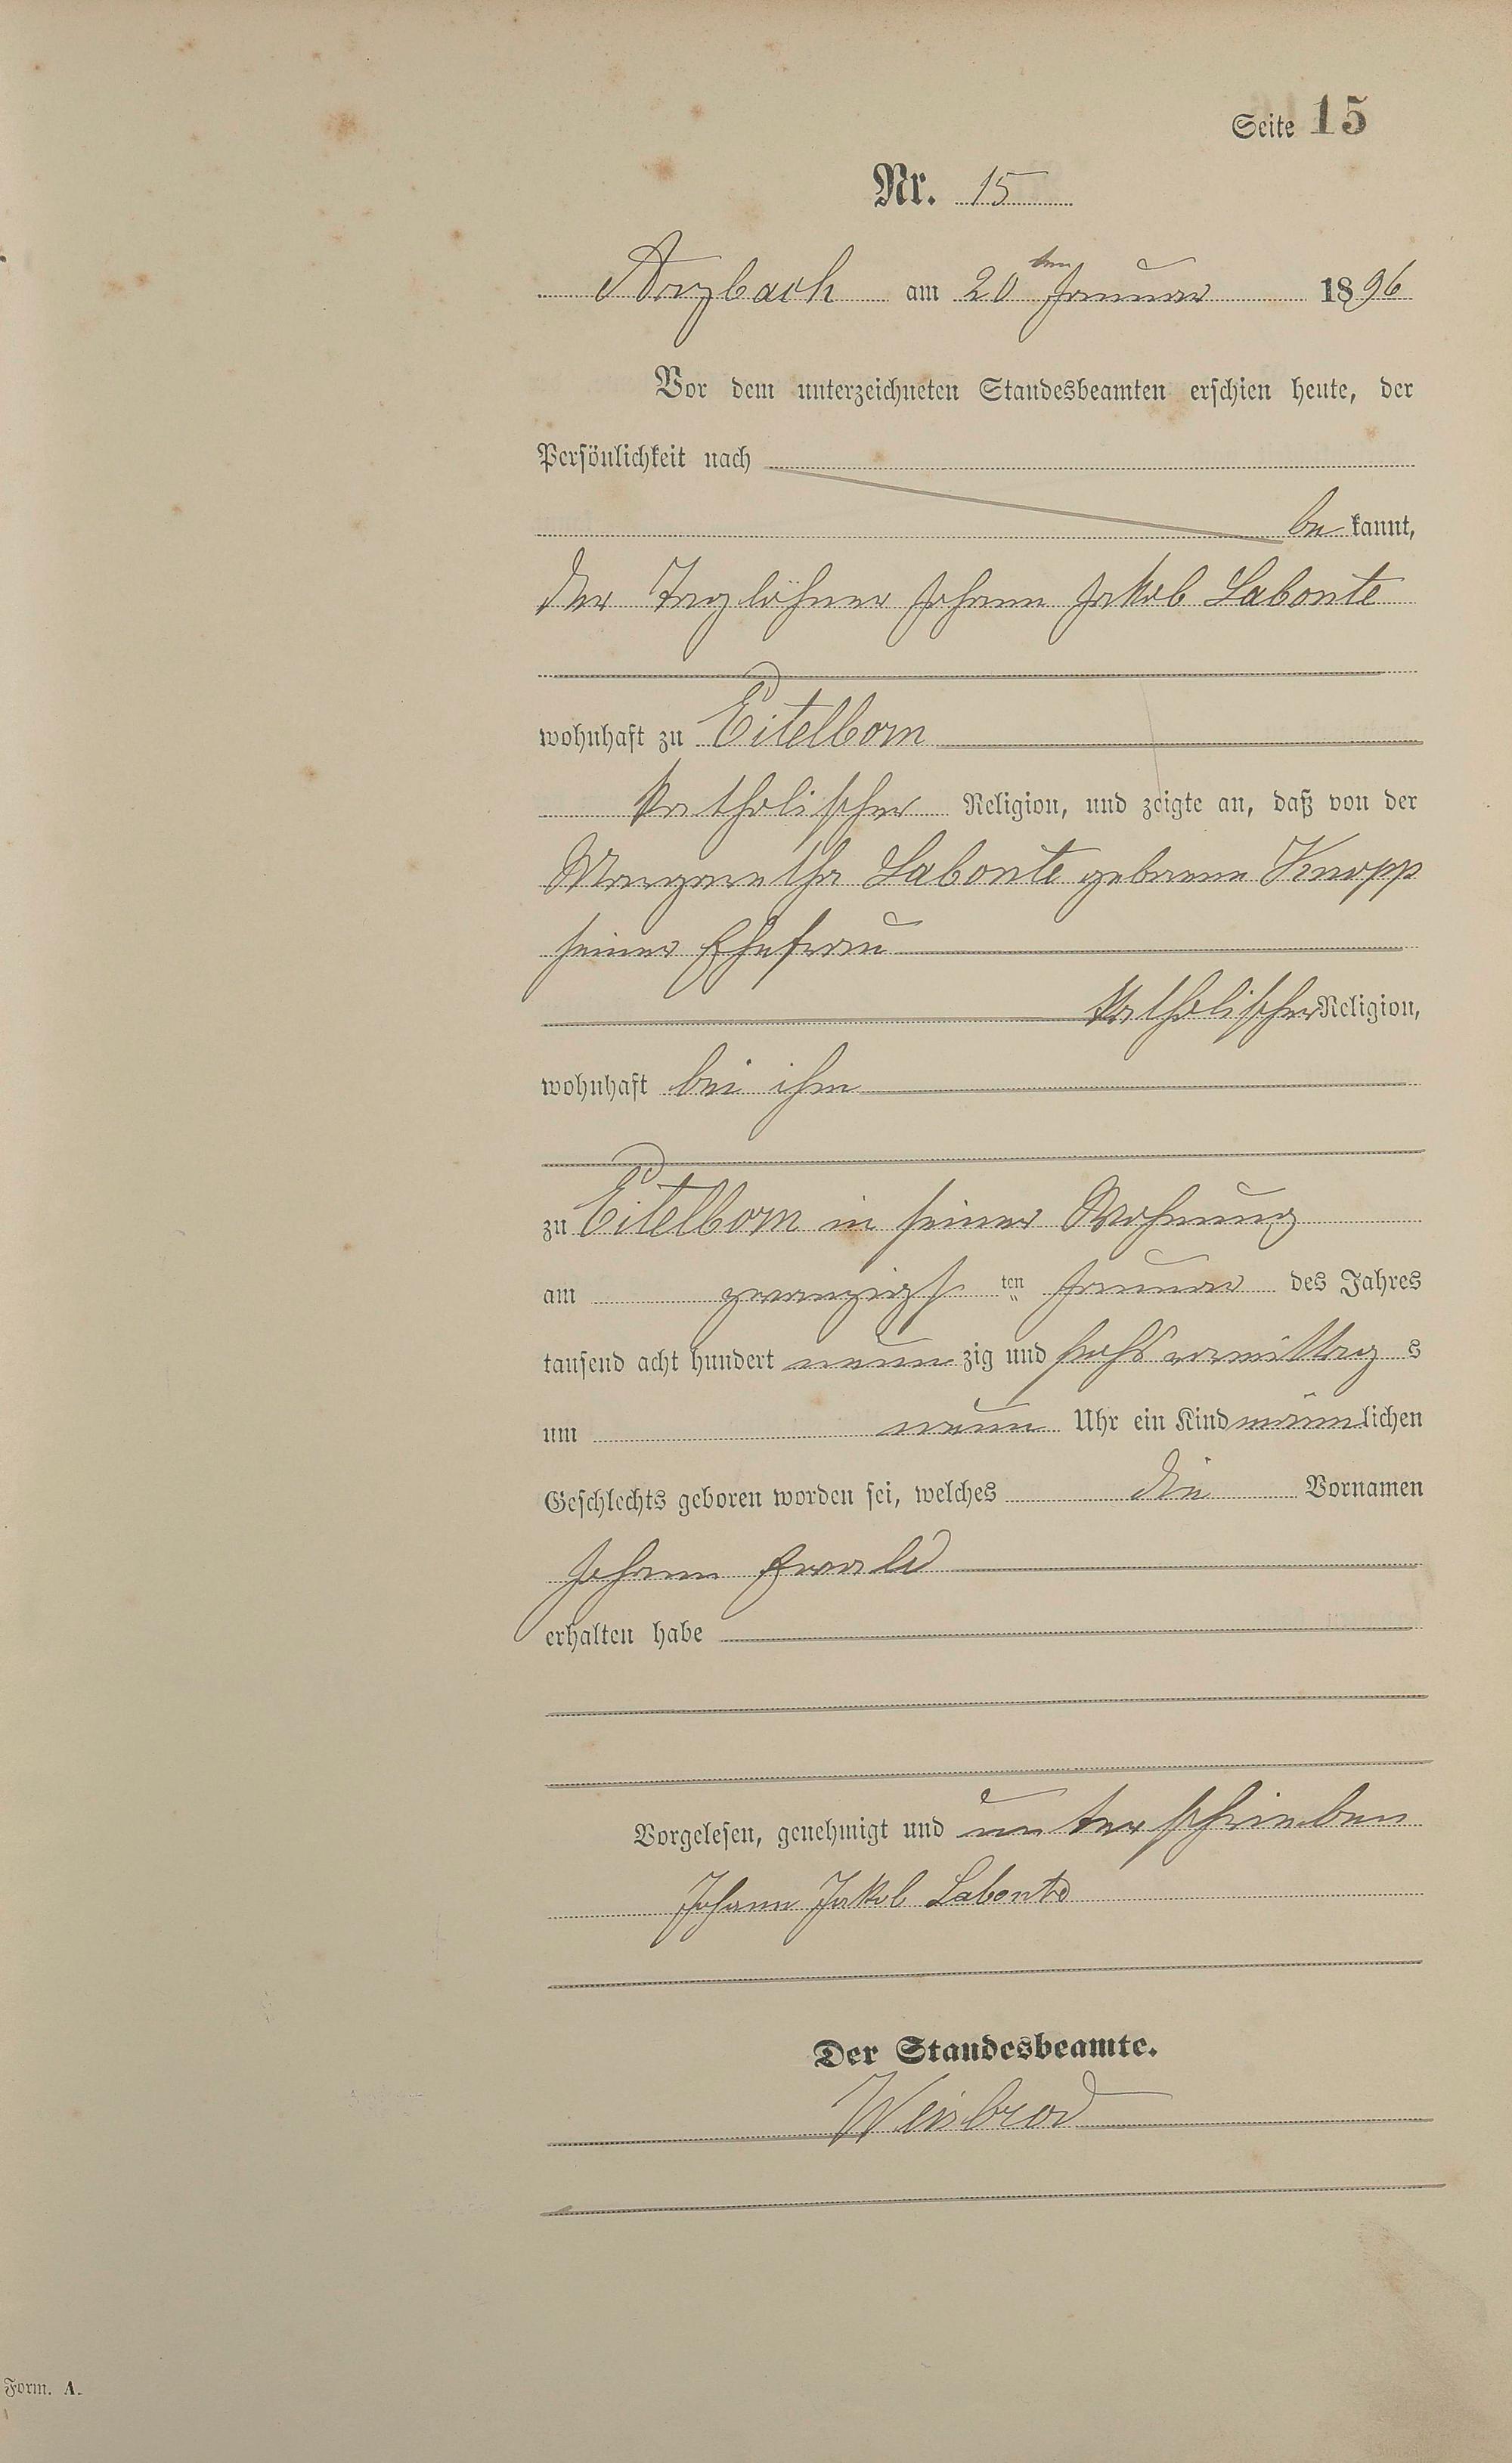 Seite 15
Nr. 15
Arzbach am 20ten Januar 1896
Vor dem unterzeichneten Standesbeamten erschien heute, der
Persönlichkeit nach
bekannt,
der Taglöhner Johann Jakob Labonte
wohnhaft zu Eitelborn
katholischer Religion, und zeigte an, daß von der
Margaretha Labonte geborene Knopp
seiner Ehefrau
katholischer Religion,
wohnhaft bei ihm
zu Eitelborn in seiner Wohnung
am zwanzigsten Januar des Jahres
tausend acht hundert neunzig und sechs vormittags
um neun Uhr ein Kind männlichen
Geschlechts geboren worden sei, welches die Vornamen
Johann Ewald
erhalten habe
Vorgelesen, genehmigt und unterschrieben
Johann Jakob Labonte
Der Standesbeamte.
Weisbrod
Form. A.